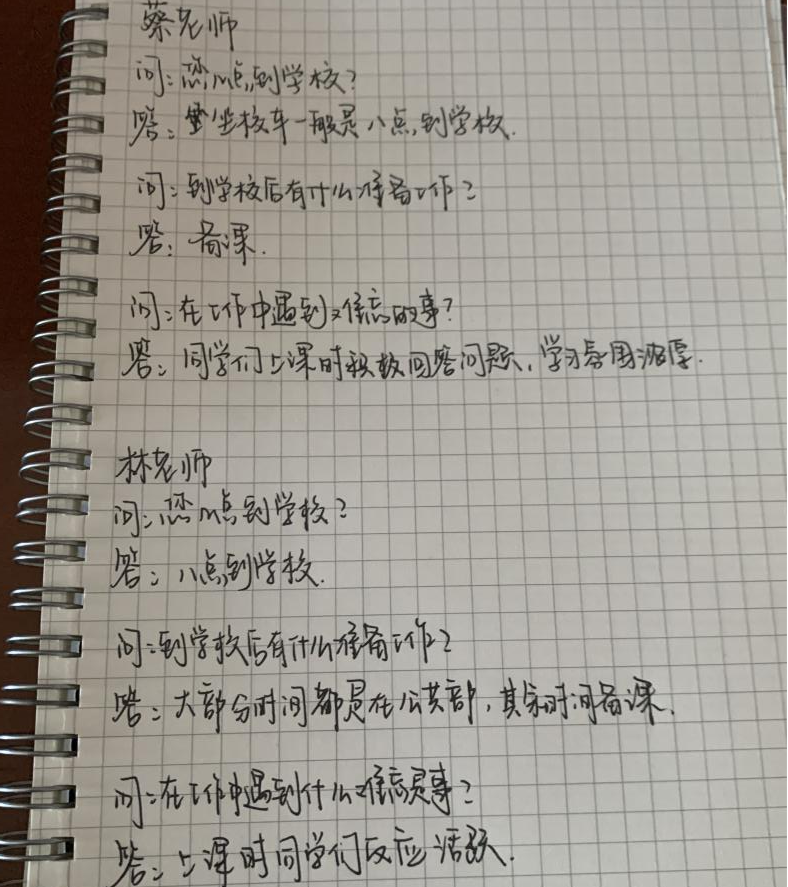 蔡老师
问：您几点到学校？
答：坐校车一般是八点到学校.
问：到学校后有什么准备工作？
答：备课.
问：在工作中遇到难忘的事？
答：同学们上课时积极回答问题，学习氛围浓厚.
林老师
问：您几点到学校？
答：八点到学校.
问：到学校后有什么准备工作？
答：大部分时间都是在公共部，其余时间备课.
问：在工作中遇到什么难忘是事？
答：上课时同学们反应活跃.